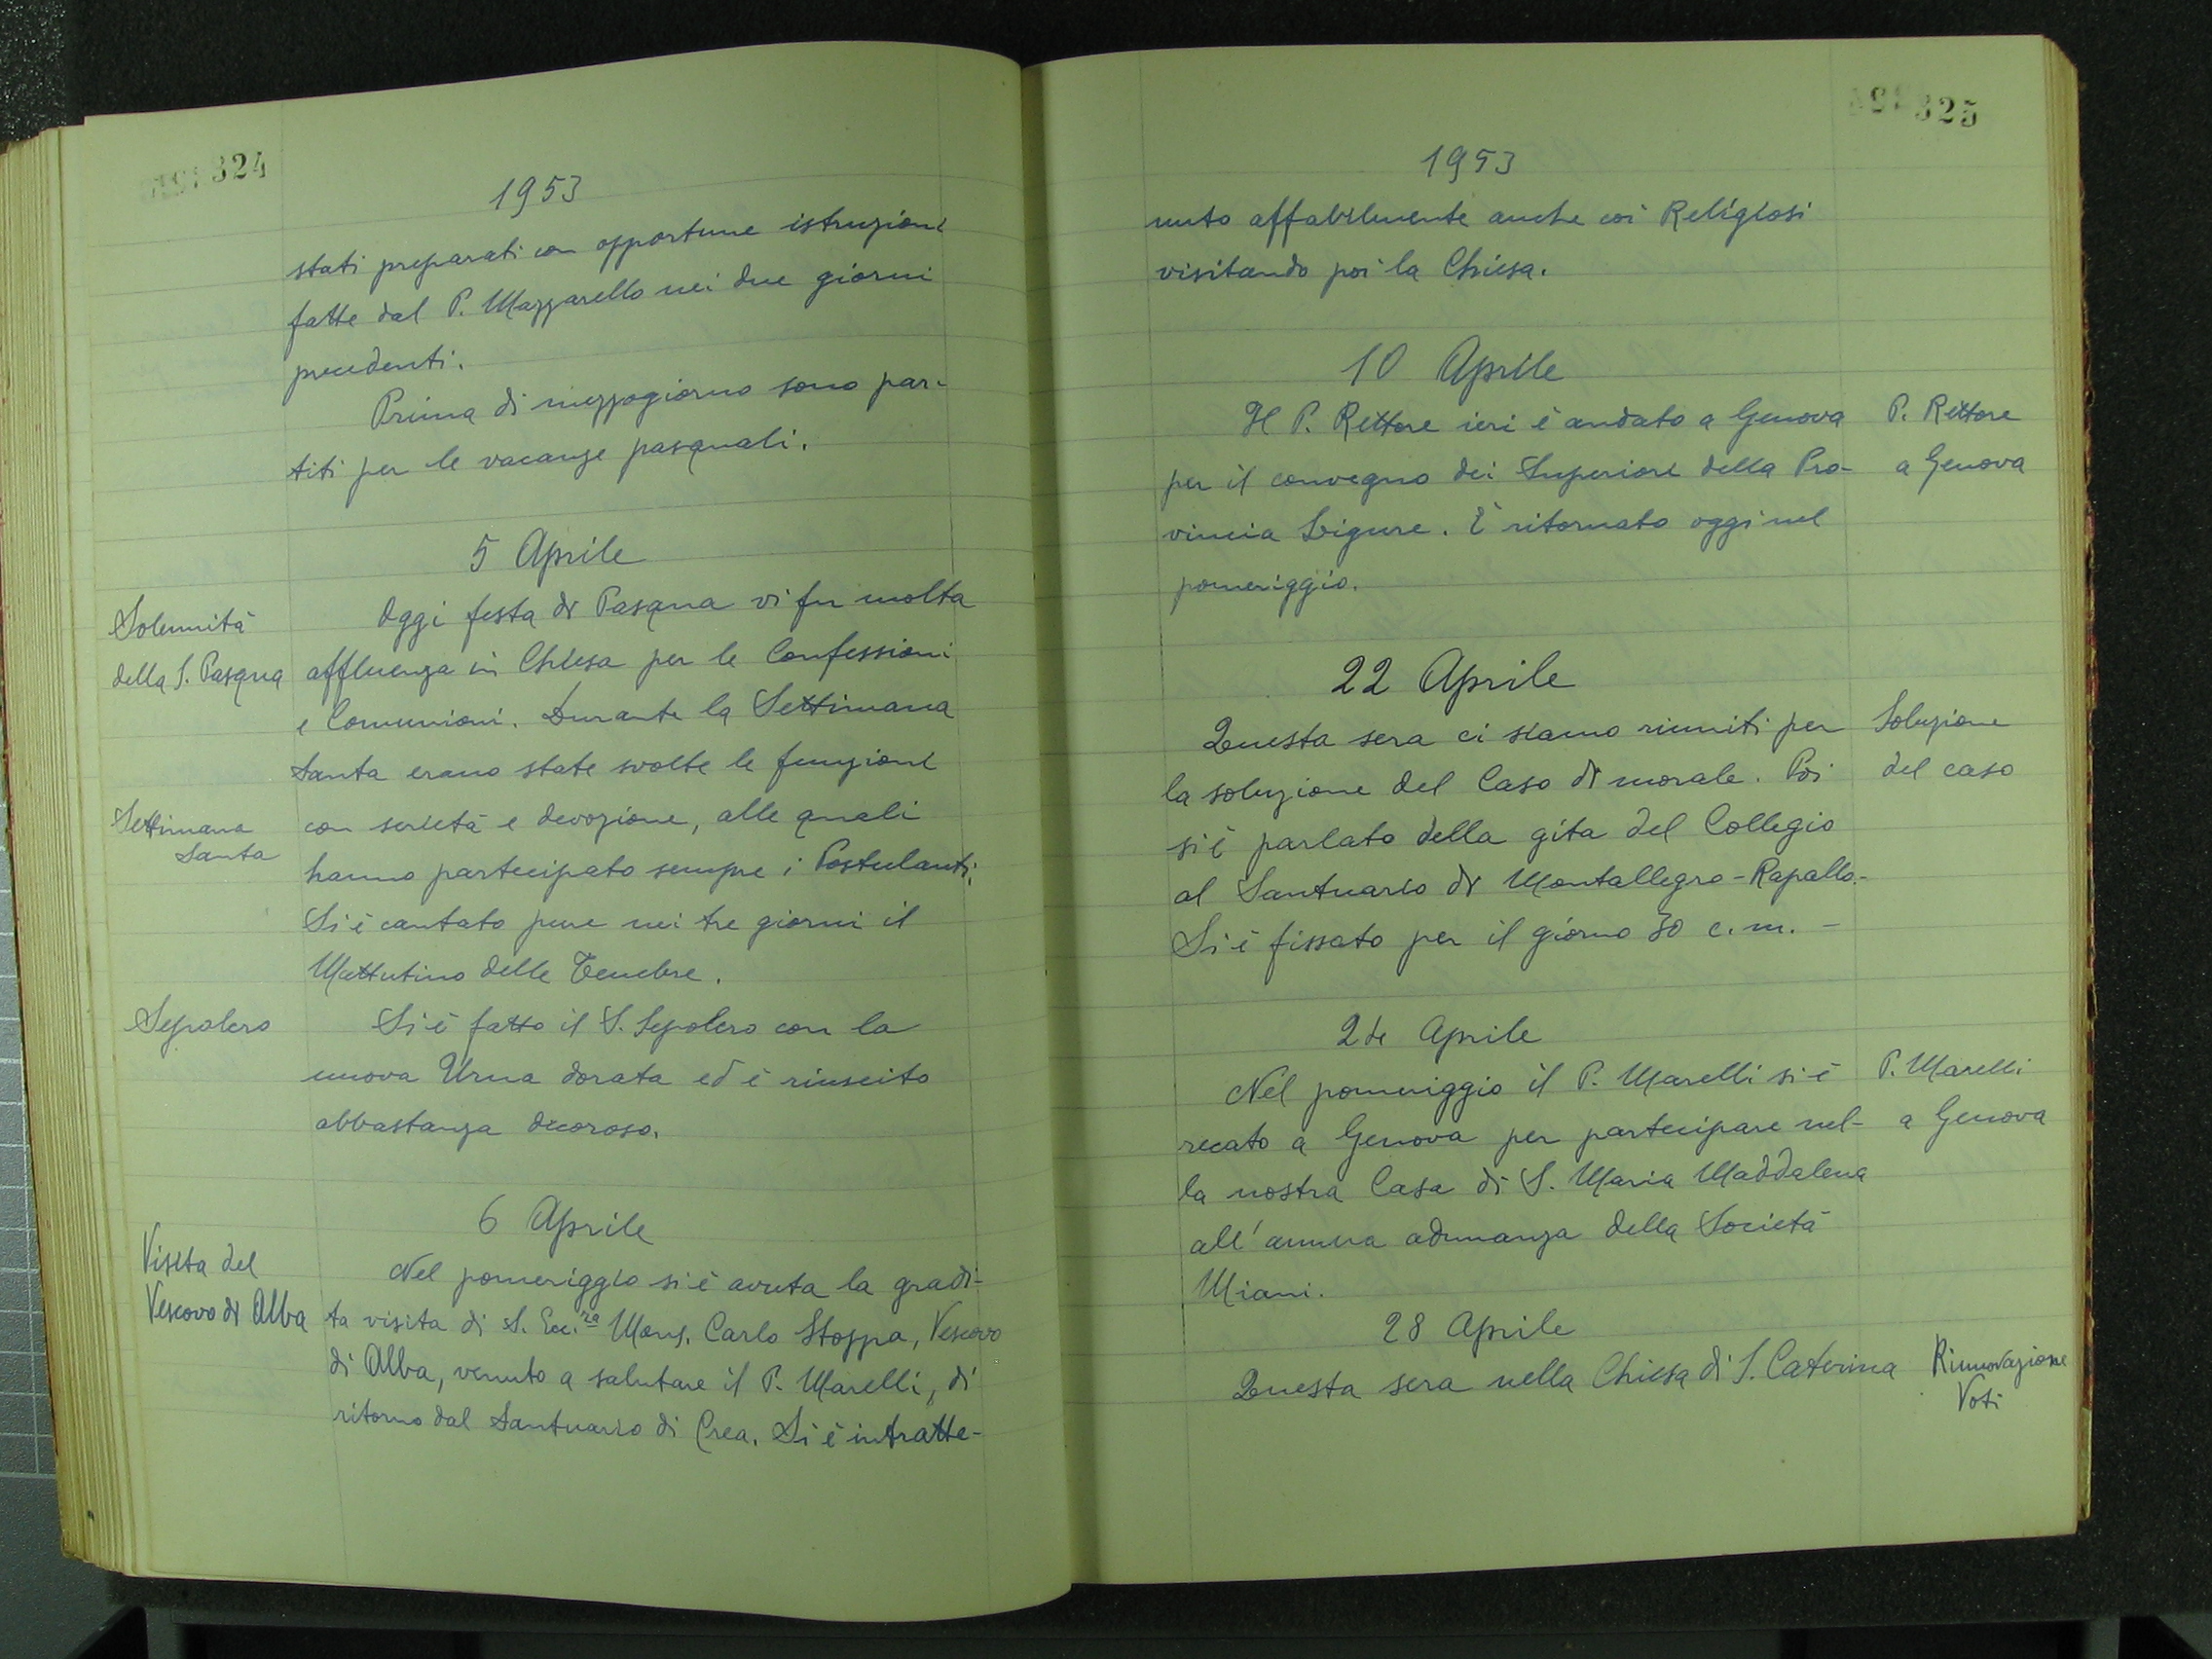 324
1953
stati preparati con opportune istruzioni
fatte dal P. Mazzarello nei due giorni
precedenti.
Prima di mezzogiorno sono par-
titi per le vacanze pasquali.
5 Aprile
Solennità
della S. Pasqua
Oggi festa di Pasqua vi fu molta
affluenza in Chiesa per le Confessioni
e Comunioni. Durante la Settimana
Santa erano state svolte le funzioni
Settimana
Santa
con serietà e devozione, alle quali
hanno partecipato sempre i Postulanti.
Si è cantato pure nei tre giorni il
Mattutino delle Tenebre.
Sepolcro
Si è fatto il S. Sepolcro con la
nuova Urna dorata ed è riuscito
abbastanza decoroso.
6 Aprile
Visita del
Vescovo di Alba
Nel pomeriggio si è avuta la gradi-
ta visita di S. Ecc.za Mons. Carlo Stoppa, Vescovo
di Alba, venuto a salutare il P. Marelli, di
ritorno dal Santuario di Crea. Si è intratte-
325
1953
nuto affabilmente anche coi Religiosi
visitando poi la Chiesa.
10 Aprile
Il P. Rettore ieri è andato a Genova
per il convegno dei Superiori della Pro-
vincia Ligure. È ritornato oggi nel
pomeriggio.
P. Rettore
a Genova
22 Aprile
Questa sera ci siamo riuniti per
la soluzione del Caso di morale. Poi
si è parlato della gita del Collegio
al Santuario di Montallegro-Rapallo.-
Si è fissato per il giorno 30 c.m. -
Soluzione
del caso
24 Aprile
Nel pomeriggio il P. Marelli si è
recato a Genova per partecipare nel-
la nostra Casa di S. Maria Maddalena
all'annua adunanza della Società
Miani.
P. Marelli
a Genova
28 Aprile
Questa sera nella Chiesa di S. Caterina
Rinnovazione
Voti